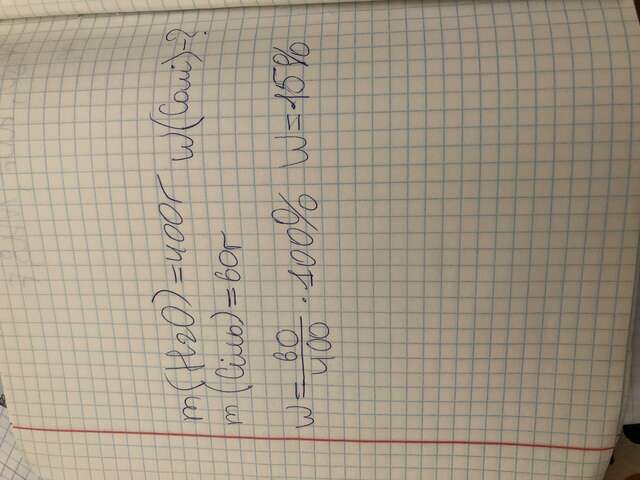 m(H2O)=400г W(Солі)-?
m(Сіль)=60г
W=60/400·100% W=15%